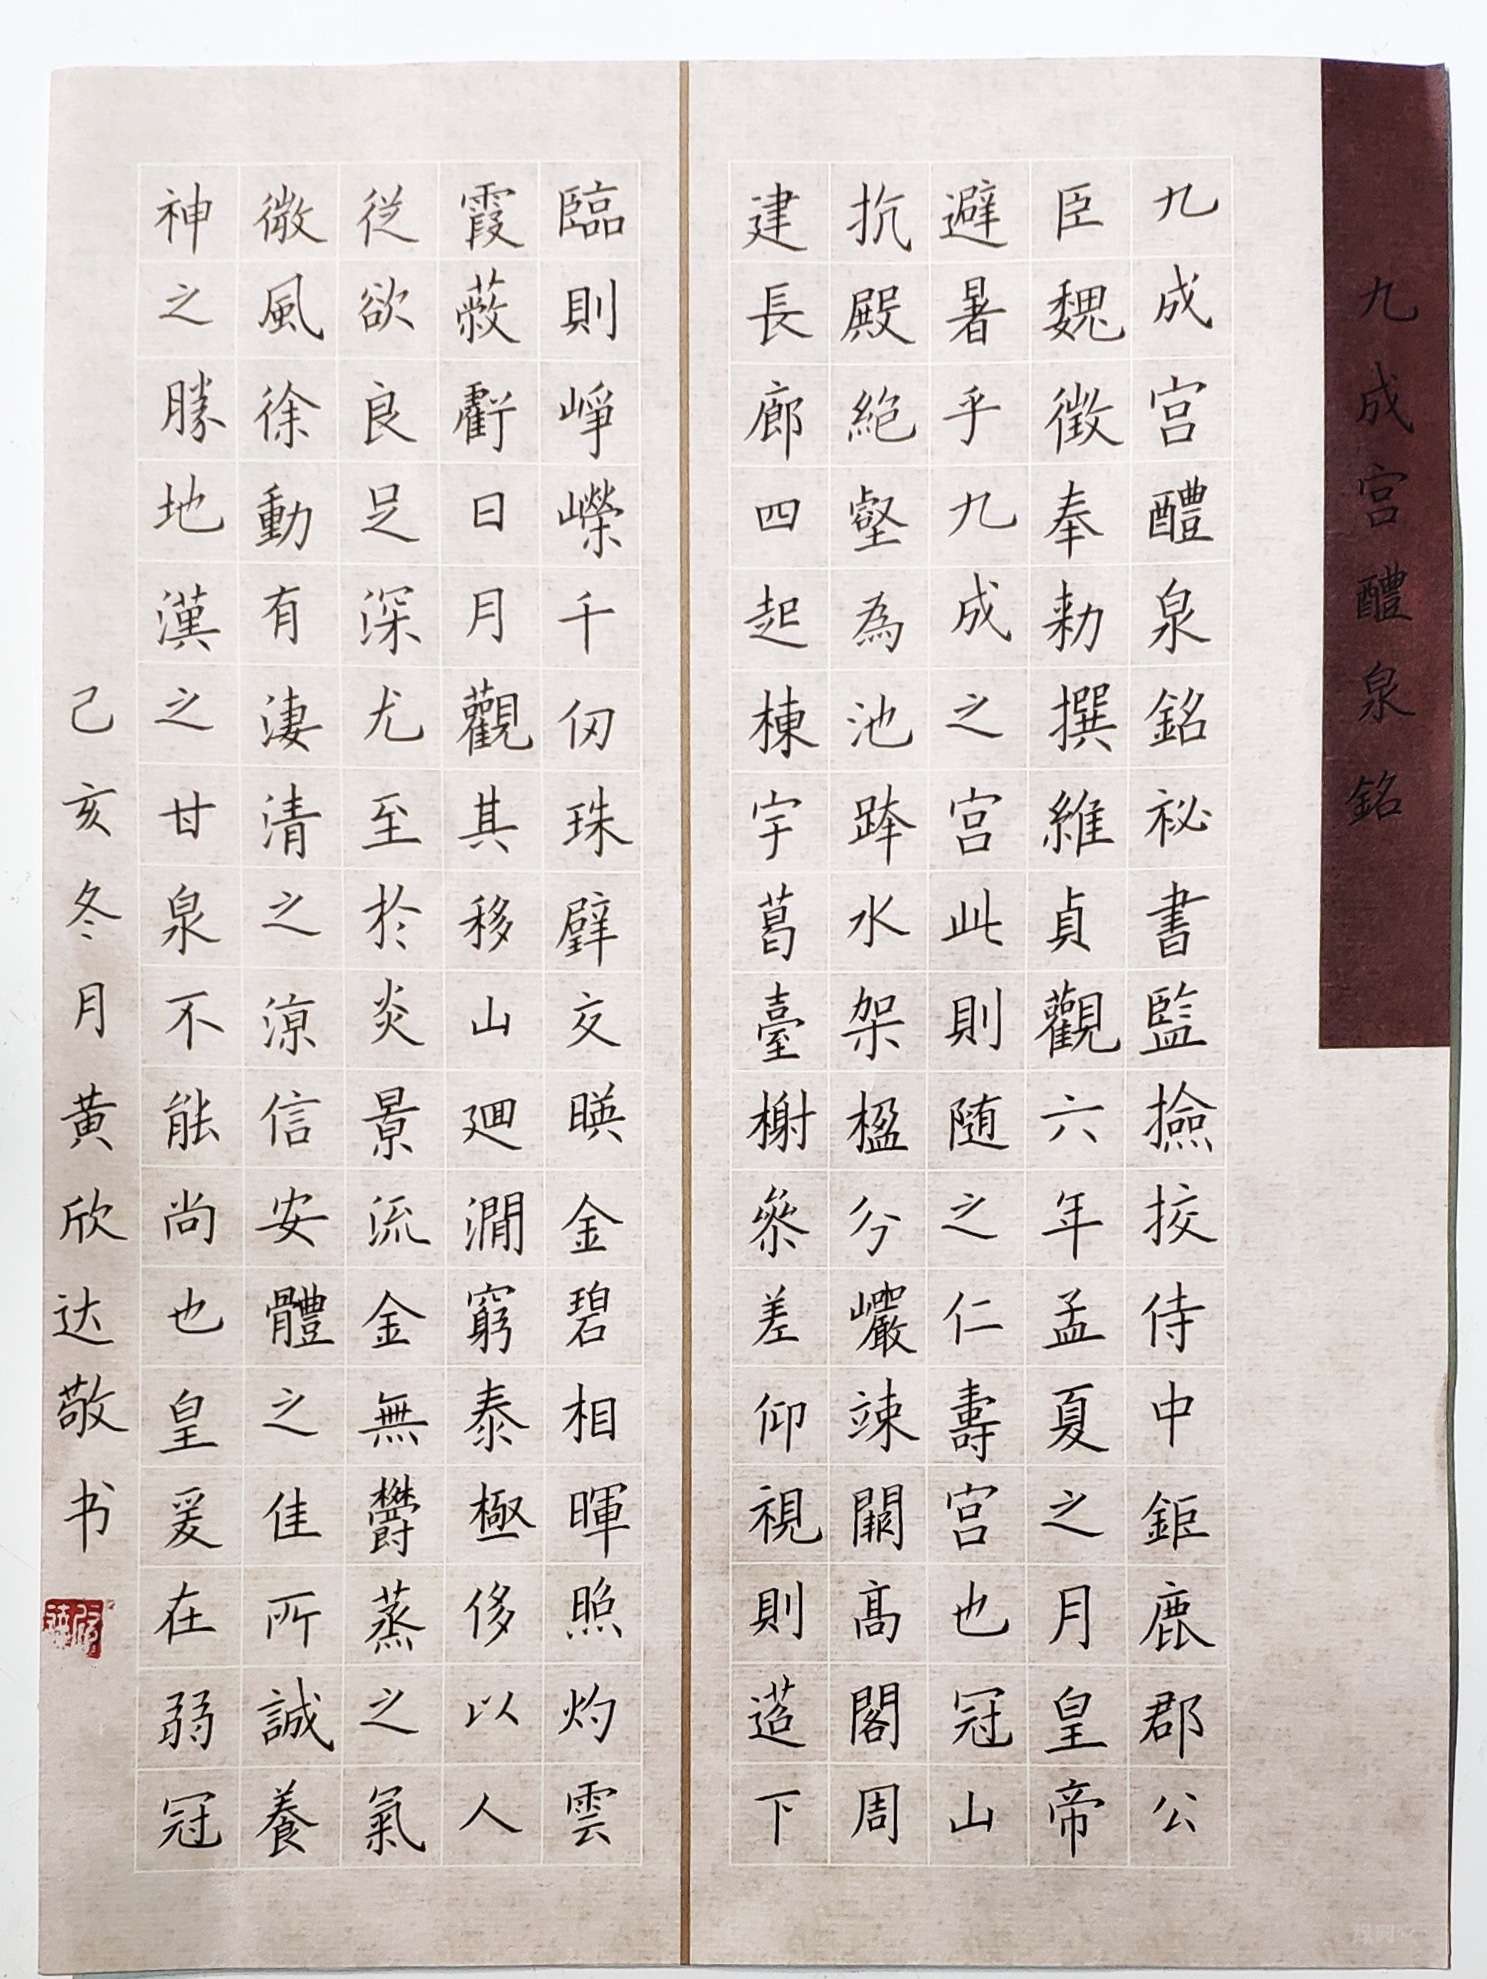 九成宫醴泉銘
九成宫醴泉銘祕書監撿挍侍中鉅鹿郡公
臣魏徴奉勑撰維貞觀六年孟夏之月皇帝
避暑乎九成之宫此則随之仁壽宫也冠山
抗殿絶壑為池跨水架楹分巖竦闕高閣周
建長廊四起棟宇葛臺榭叅差仰視則迢下
臨則崢嶸千仞珠璧交暎金碧相暉照灼雲
霞蔽虧日月觀其移山廻澗窮泰極侈以人
従欲良足深尤至於炎景流金無欝蒸之氣
微風徐動有淒清之涼信安體之佳所誠養
神之勝地漢之甘泉不能尚也皇爰在弱冠
己亥冬月黄欣达敬书